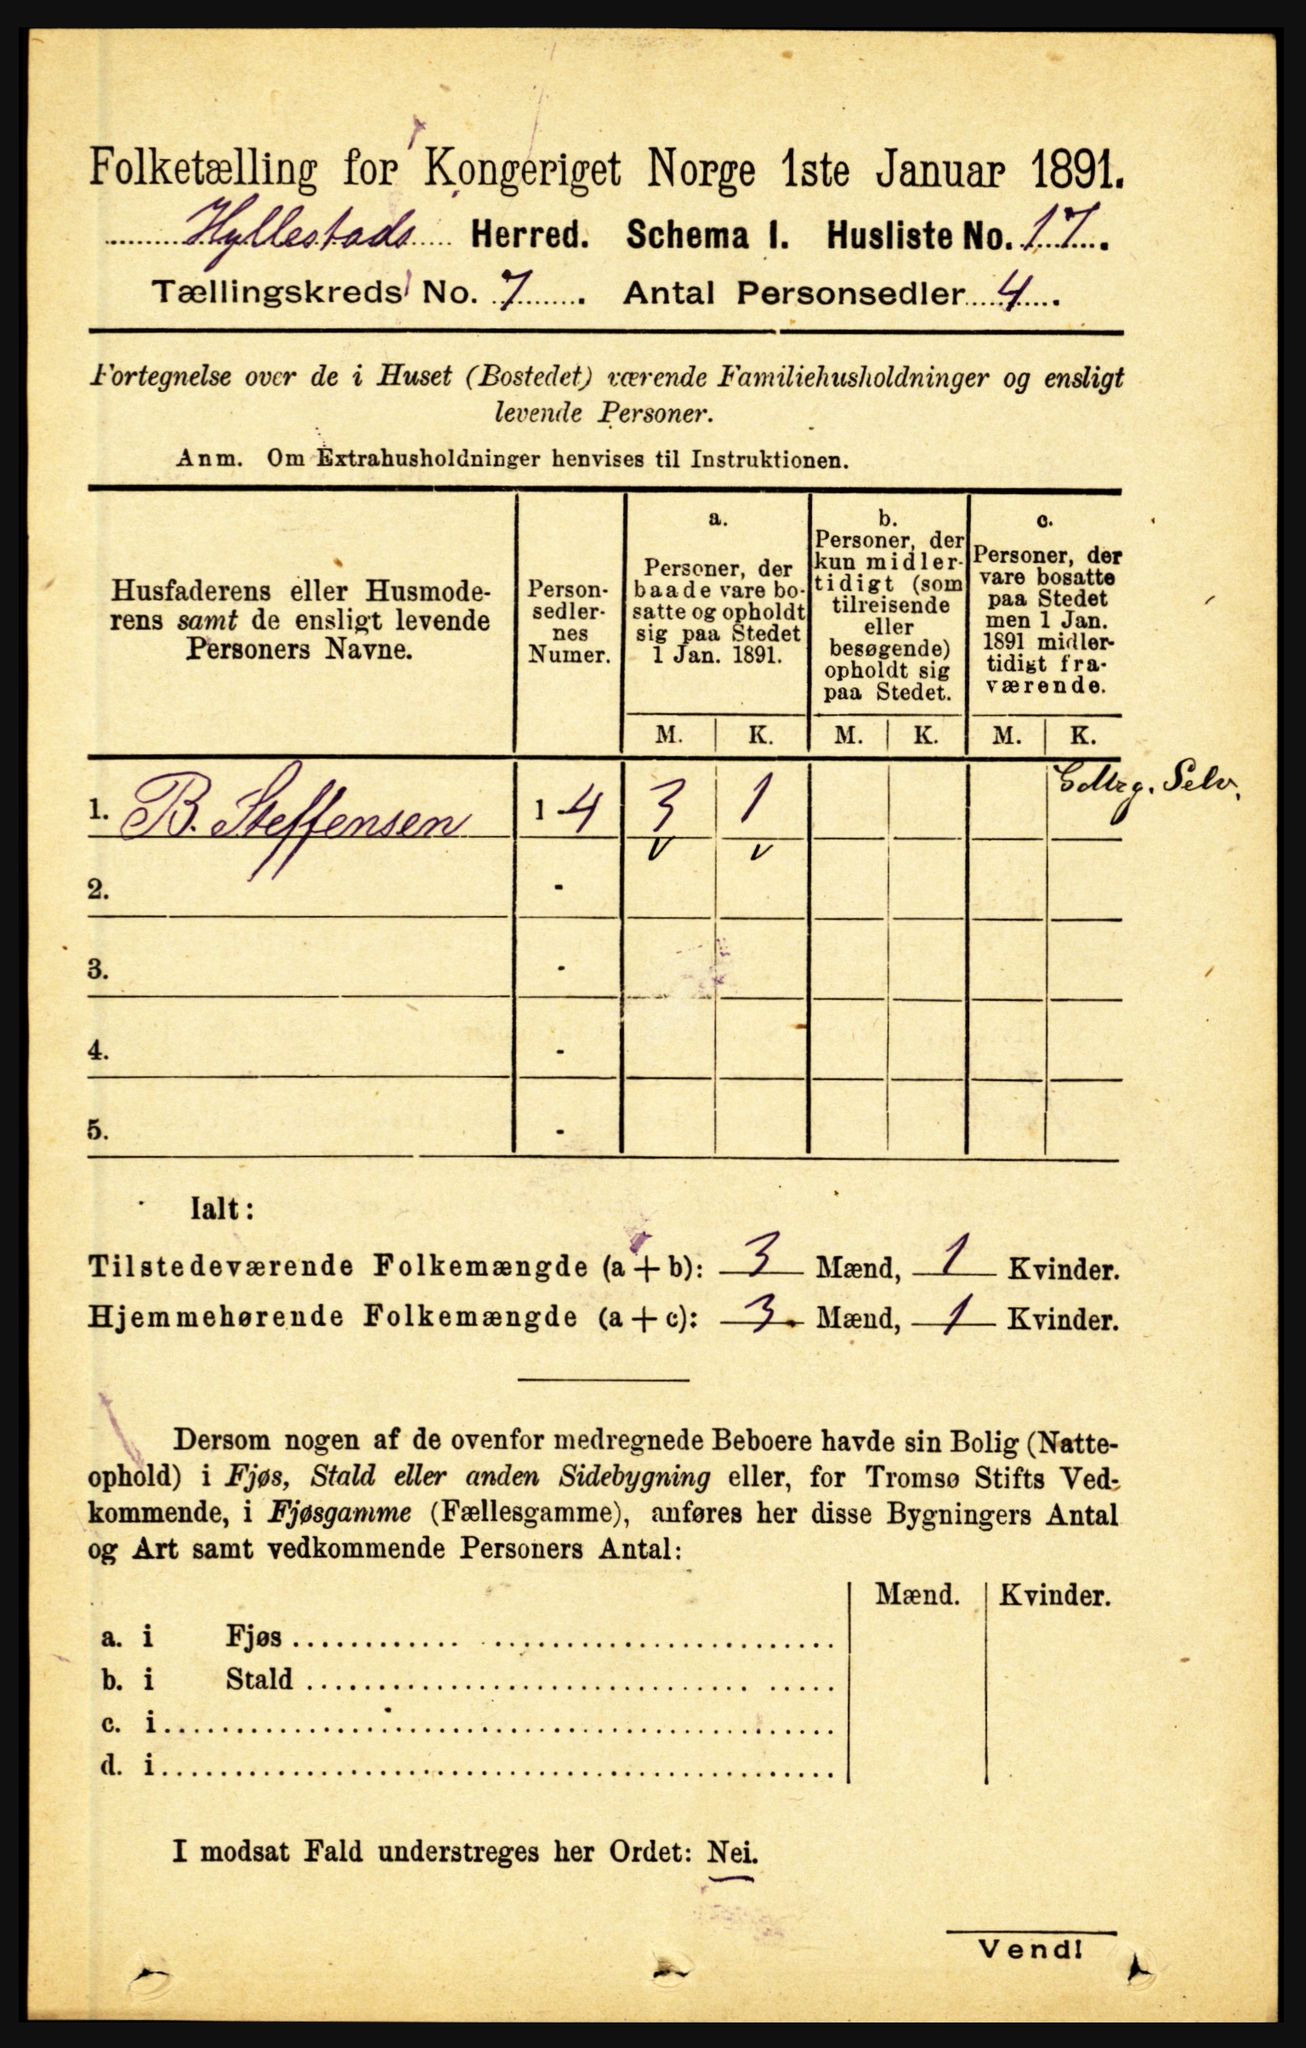 Folketælling for Kongeriget Norge 1ste Januar 1891.
Hyllestads Herred. Schema I. Husliste No. 17.
Tællingskreds No. 7. Antal Personsedler 4.
Fortegnelse over de i Huset (Bostedet) værende Familiehusholdninger og ensligt
levende Personer.
Anm. Om Extrahusholdninger henvises til Instruktionen.
Husfaderens eller Husmode-
rens samt de ensligt levende
Personers Navne.
Person-
sedler-
nes
Numer.
a.
Personer, der
baade vare bo-
satte og opholdt
sig paa Stedet
1 Jan. 1891.
b.
Personer, der
kun midler-
tidigt (som
tilreisende
eller
besøgende)
opholdt sig
paa Stedet.
c.
Personer, der
vare bosatte
paa Stedet
men 1 Jan.
1891 midler-
tidigt fra-
værende.
M. K. M. K. M. K.
1. B. Steffensen 1-4 3 1 Selv.
v v
2. -
3. -
4. -
5. -
Ialt:
Tilstedeværende Folkemængde (a + b): 3 Mænd, 1 Kvinder.
Hjemmehørende Folkemængde (a + c): 3 Mænd, 1 Kvinder.
Dersom nogen af de ovenfor medregnede Beboere havde sin Bolig (Natte-
ophold) i Fjøs, Stald eller anden Sidebygning eller, for Tromsø Stifts Ved-
kommende, i Fjøsgamme (Fællesgamme), anføres her disse Bygningers Antal
og Art samt vedkommende Personers Antal:
Mænd. Kvinder.
a. i Fjøs
b. i Stald
c. i
d. i
I modsat Fald understreges her Ordet: Nei.
Vend!